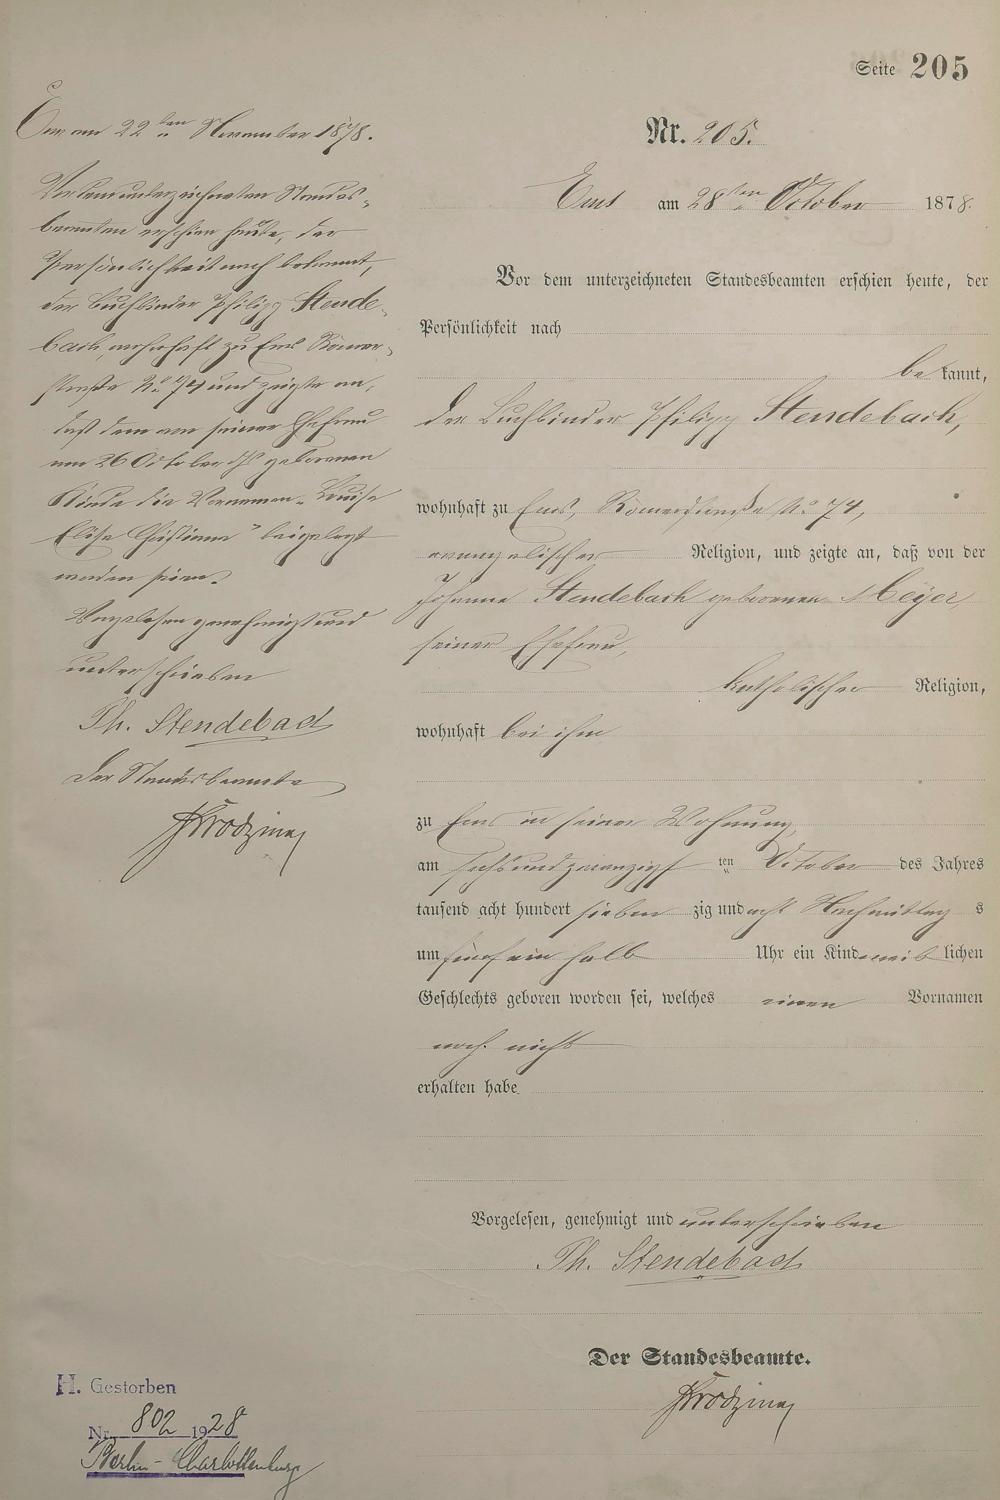 Seite 205
Nr. 205.
Ems am 28ten October 1878.
Vor dem unterzeichneten Standesbeamten erschien heute, der
Persönlichkeit nach
bekannt,
der Buchbinder Philipp Stendebach,
wohnhaft zu Ems, Römerstraße No 74,
evangelischer Religion, und zeigte an, daß von der
Johanna Stendebach geborenen Meÿer,
seiner Ehefrau,
katholischer Religion,
wohnhaft bei ihm
zu Ems in seiner Wohnung,
am sechsundzwanzigsten October des Jahres
tausend acht hundert siebenzig und acht Nachmittags
um fünf ein halb Uhr ein Kind weiblichen
Geschlechts geboren worden sei, welches einen Vornamen
noch nicht
erhalten habe.
Vorgelesen, genehmigt und unterschrieben
Ph. Stendebach
Der Standesbeamte.
Ems am 22ten November 1878.
Vor dem unterzeichneten Standes-
beamten erschien heute, der
Persönlichkeit nach bekannt,
der Buchbinder Philipp Stende-
bach, wohnhaft zu Ems Römer-
straße No 74 und zeigte an,
daß dem von seiner Ehefrau
am 26 October ds geborenen
Kinde die Vornamen "Louise
Elise Christiane" beigelegt
worden seien.
Vorgelesen genehmigt und
unterschrieben
Ph. Stendebach
Der Standesbeamte
H. Gestorben
Nr. 802 1928
Berlin-Charlottenburg